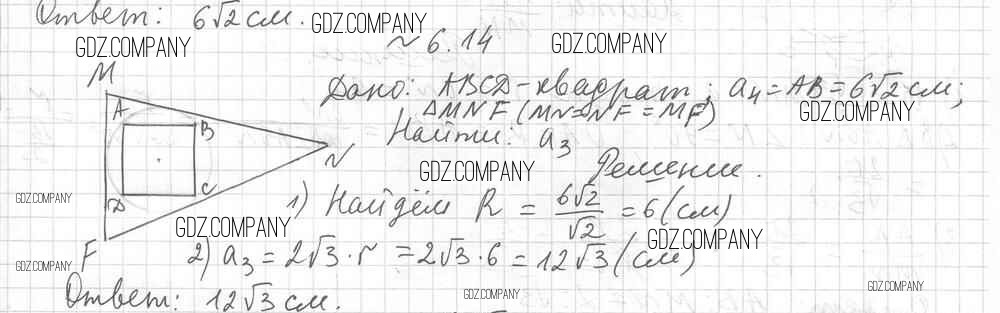 Ответ: 6√2 см.
GDZ.COMPANY
GDZ.COMPANY
~ 6.14
GDZ.COMPANY
M
A
B
N
D
C
F
Дано: ABCD - квадрат; a₄ = AB = 6√2 см;
△MNF (MN = NF = MF)
GDZ.COMPANY
Найти: a₃
GDZ.COMPANY
Решение.
GDZ.COMPANY
1) Найдём R = 6√2/√2 = 6 (см)
GDZ.COMPANY
GDZ.COMPANY
2) a₃ = 2√3 · r = 2√3 · 6 = 12√3 (см)
GDZ.COMPANY
Ответ: 12√3 см.
GDZ.COMPANY
GDZ.COMPANY